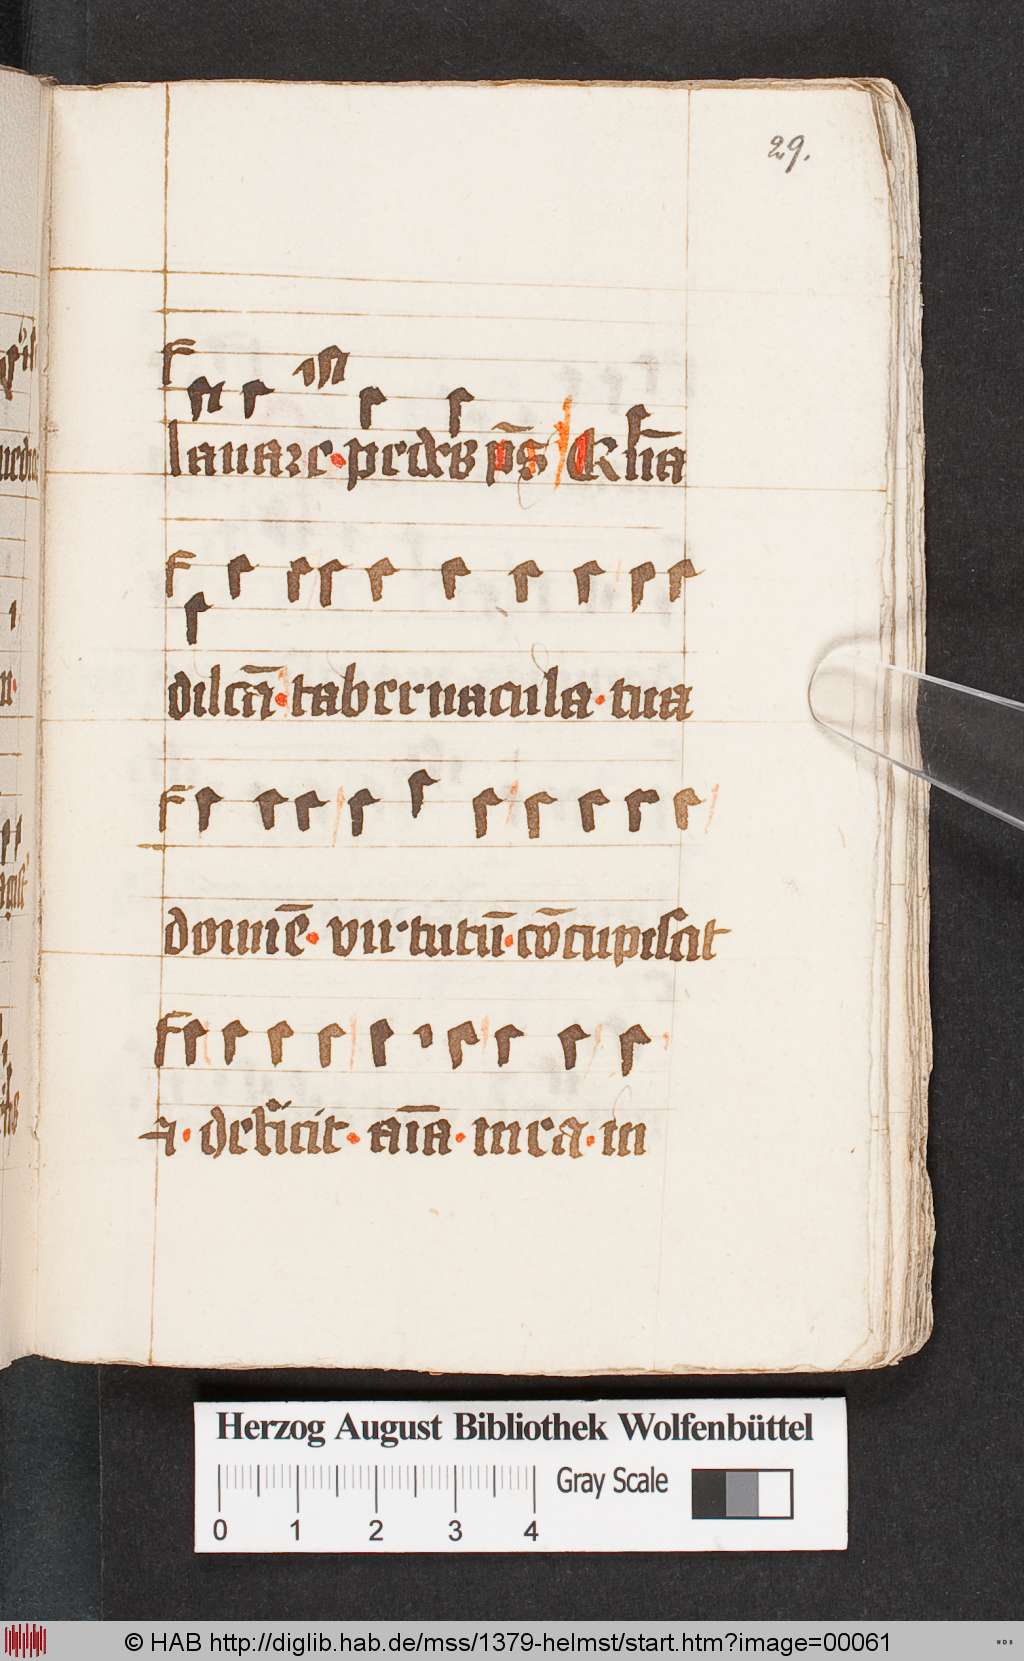 29.
lauare · pedes p̄s Q̄m
dilc̄ā · tabernacula · tua
domīe · virtutū · cōcupiscit
⁊ · deficit · aīa · mea · in
Herzog August Bibliothek Wolfenbüttel
Gray Scale
0 1 2 3 4
© HAB http://diglib.hab.de/mss/1379-helmst/start.htm?image=00061